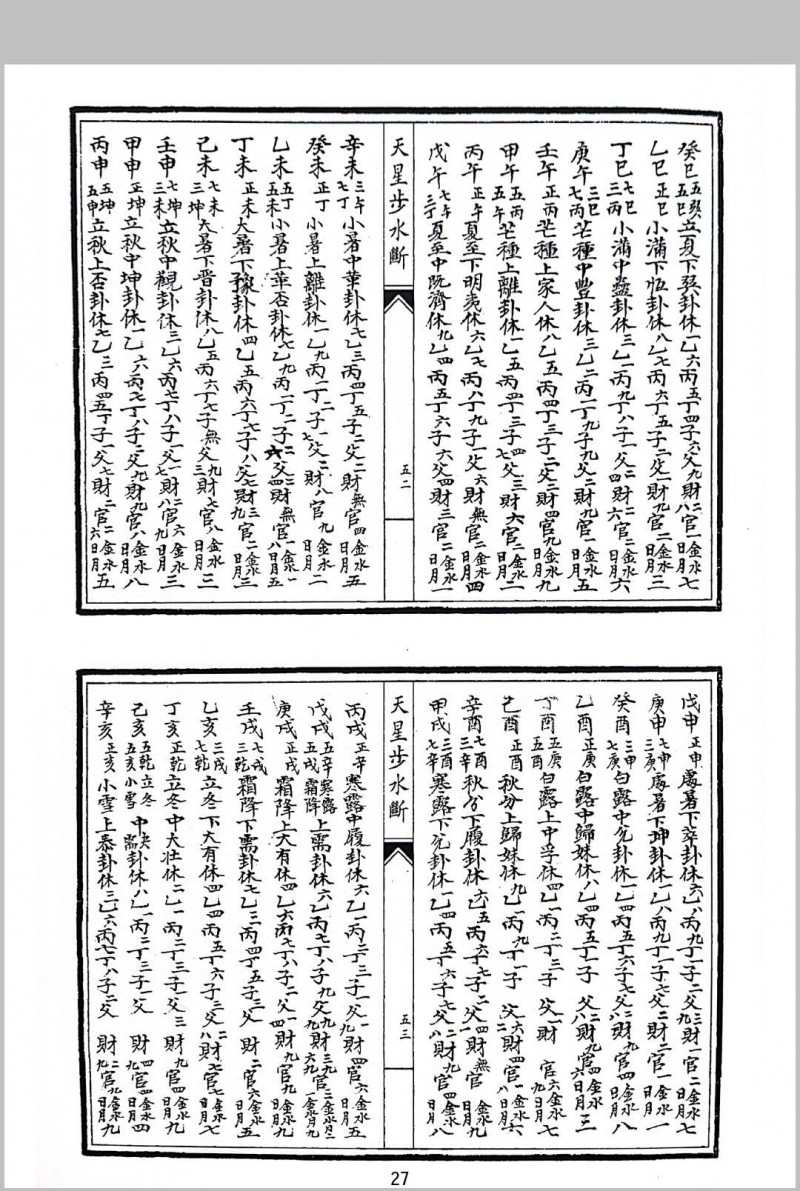 癸巳五巽五巳立夏下巽卦休一乙六丙五丁四子六父九財八二官一金水日月七
乙巳正巳小滿下恆卦休八乙七丙六丁五子二父一財二官一金水日月三
丁巳七巳三丙小滿中蠱卦休三乙一丙九丁八子一父四財二官二金水日月六
庚午二巳七丙芒種中豐卦休三乙二丙一丁九子九父二財九官一金水日月五
壬午正丙芒種上家人休八乙五丙四丁三子二父三財四官九金水日月九
甲午五丙五午芒種上離卦休一乙五丙四丁三子四父三財六官二金水日月二
丙午正午夏至下明夷休六乙七丙八丁九子一父六財無官二金水日月四
戊午七午三丁夏至中旣濟休九乙四丙五丁六子六父四財三官二金水日月一
天星步水斷
五二
辛未三午七丁小暑中華卦休七乙三丙四丁五子二父二財無官四金水日月五
癸未正丁小暑上離卦休一乙九丙一丁二子一父二財八官九金水日月二
乙未五丁五未小暑上華否卦休七乙九丙一丁二子父四財無官一金水日月五
丁未正未大暑下豫卦休四乙五丙六丁七子八父七財三官二金水日月三
己未七未三坤大暑下晋卦休八乙五丙六丁七子無父九財七官八金水日月三
壬申七坤立秋中觀卦休三乙六丙七丁八子一父一財八官六金水日月三
甲申正坤立秋中坤卦休一乙六丙七丁八子二父九財九官八金水日月八
丙申五坤五申立秋上否卦休七乙三丙四五丁子一父七財二官二金水日月五
戊申正申處暑下萃卦休六乙八丙九丁一子二父三財一官二金水日月七
庚申七申三庚處暑下坤卦休一乙八丙九丁一子七父二財二官一金水日月一
癸酉三申七庚白露中兌卦休一乙四丙五丁六子七父八財九官金水日月八
乙酉正庚白露中歸妹休八乙四丙五丁一子父八財九官六金水日月三
丁酉五庚五酉白露上中孚休四乙一丙二丁三子父一財官六金水日月
己酉正酉秋分上歸妹休九乙一丙九丁一子父六財四官二金水日月六
辛酉七酉三辛秋分下履卦休六乙五丙六丁七子二父四財無官一金水日月九
甲戌三酉七辛寒露下兌卦休一乙四丙五丁六子七父八財九官四金水日月八
天星步水斷
五三
丙戌正辛寒露中履卦休六乙一丙二丁三子一父一財四官六金水日月五
戊戌五辛五戌寒露霜降上需卦休六乙六丙七丁八子九父九財三官二金水日月
庚戌正戌霜降上大有休四乙六丙七丁八子二父四財九官九金水日月九
壬戌七戌三乾霜降下需卦休七乙三丙四丁五子三父財二官六金水日月五
乙亥三戌七乾立冬下大有休四乙四丙五丁六子三父八財七官七金水日月七
丁亥正乾立冬中大壯休二乙一丙二丁三子三父三財九官四金水日月九
己亥五乾五亥立冬小雪中夬需卦休八乙一丙二丁三子一父財九官四金水日月四
辛亥正亥小雪上泰卦休三乙六丙七丁八子二父財九官九金水日月九
27